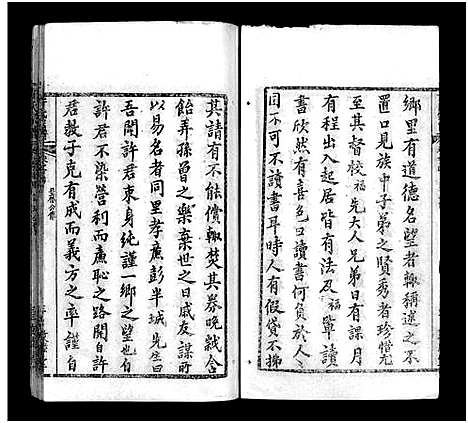 鄉里有道德名望者輒稱述之不
置口見族中子弟之賢秀者珍惜尤
至其督校福先大人兄弟日有課月
有程出入起居皆有法及福輩讀
書欣然有喜色曰讀書何負於人
因不可不讀書耳時人有假貸不揣
其請有不能償輒焚其券晚歲含
飴弄孫曾之樂棄世之日戚友謀所
以易名者同里孝廉彭半城先生曰
吾聞許君束身純謹一鄉之望也有
許君不染營利而廉恥之路開自許
君教子克有成而義方之率謹自